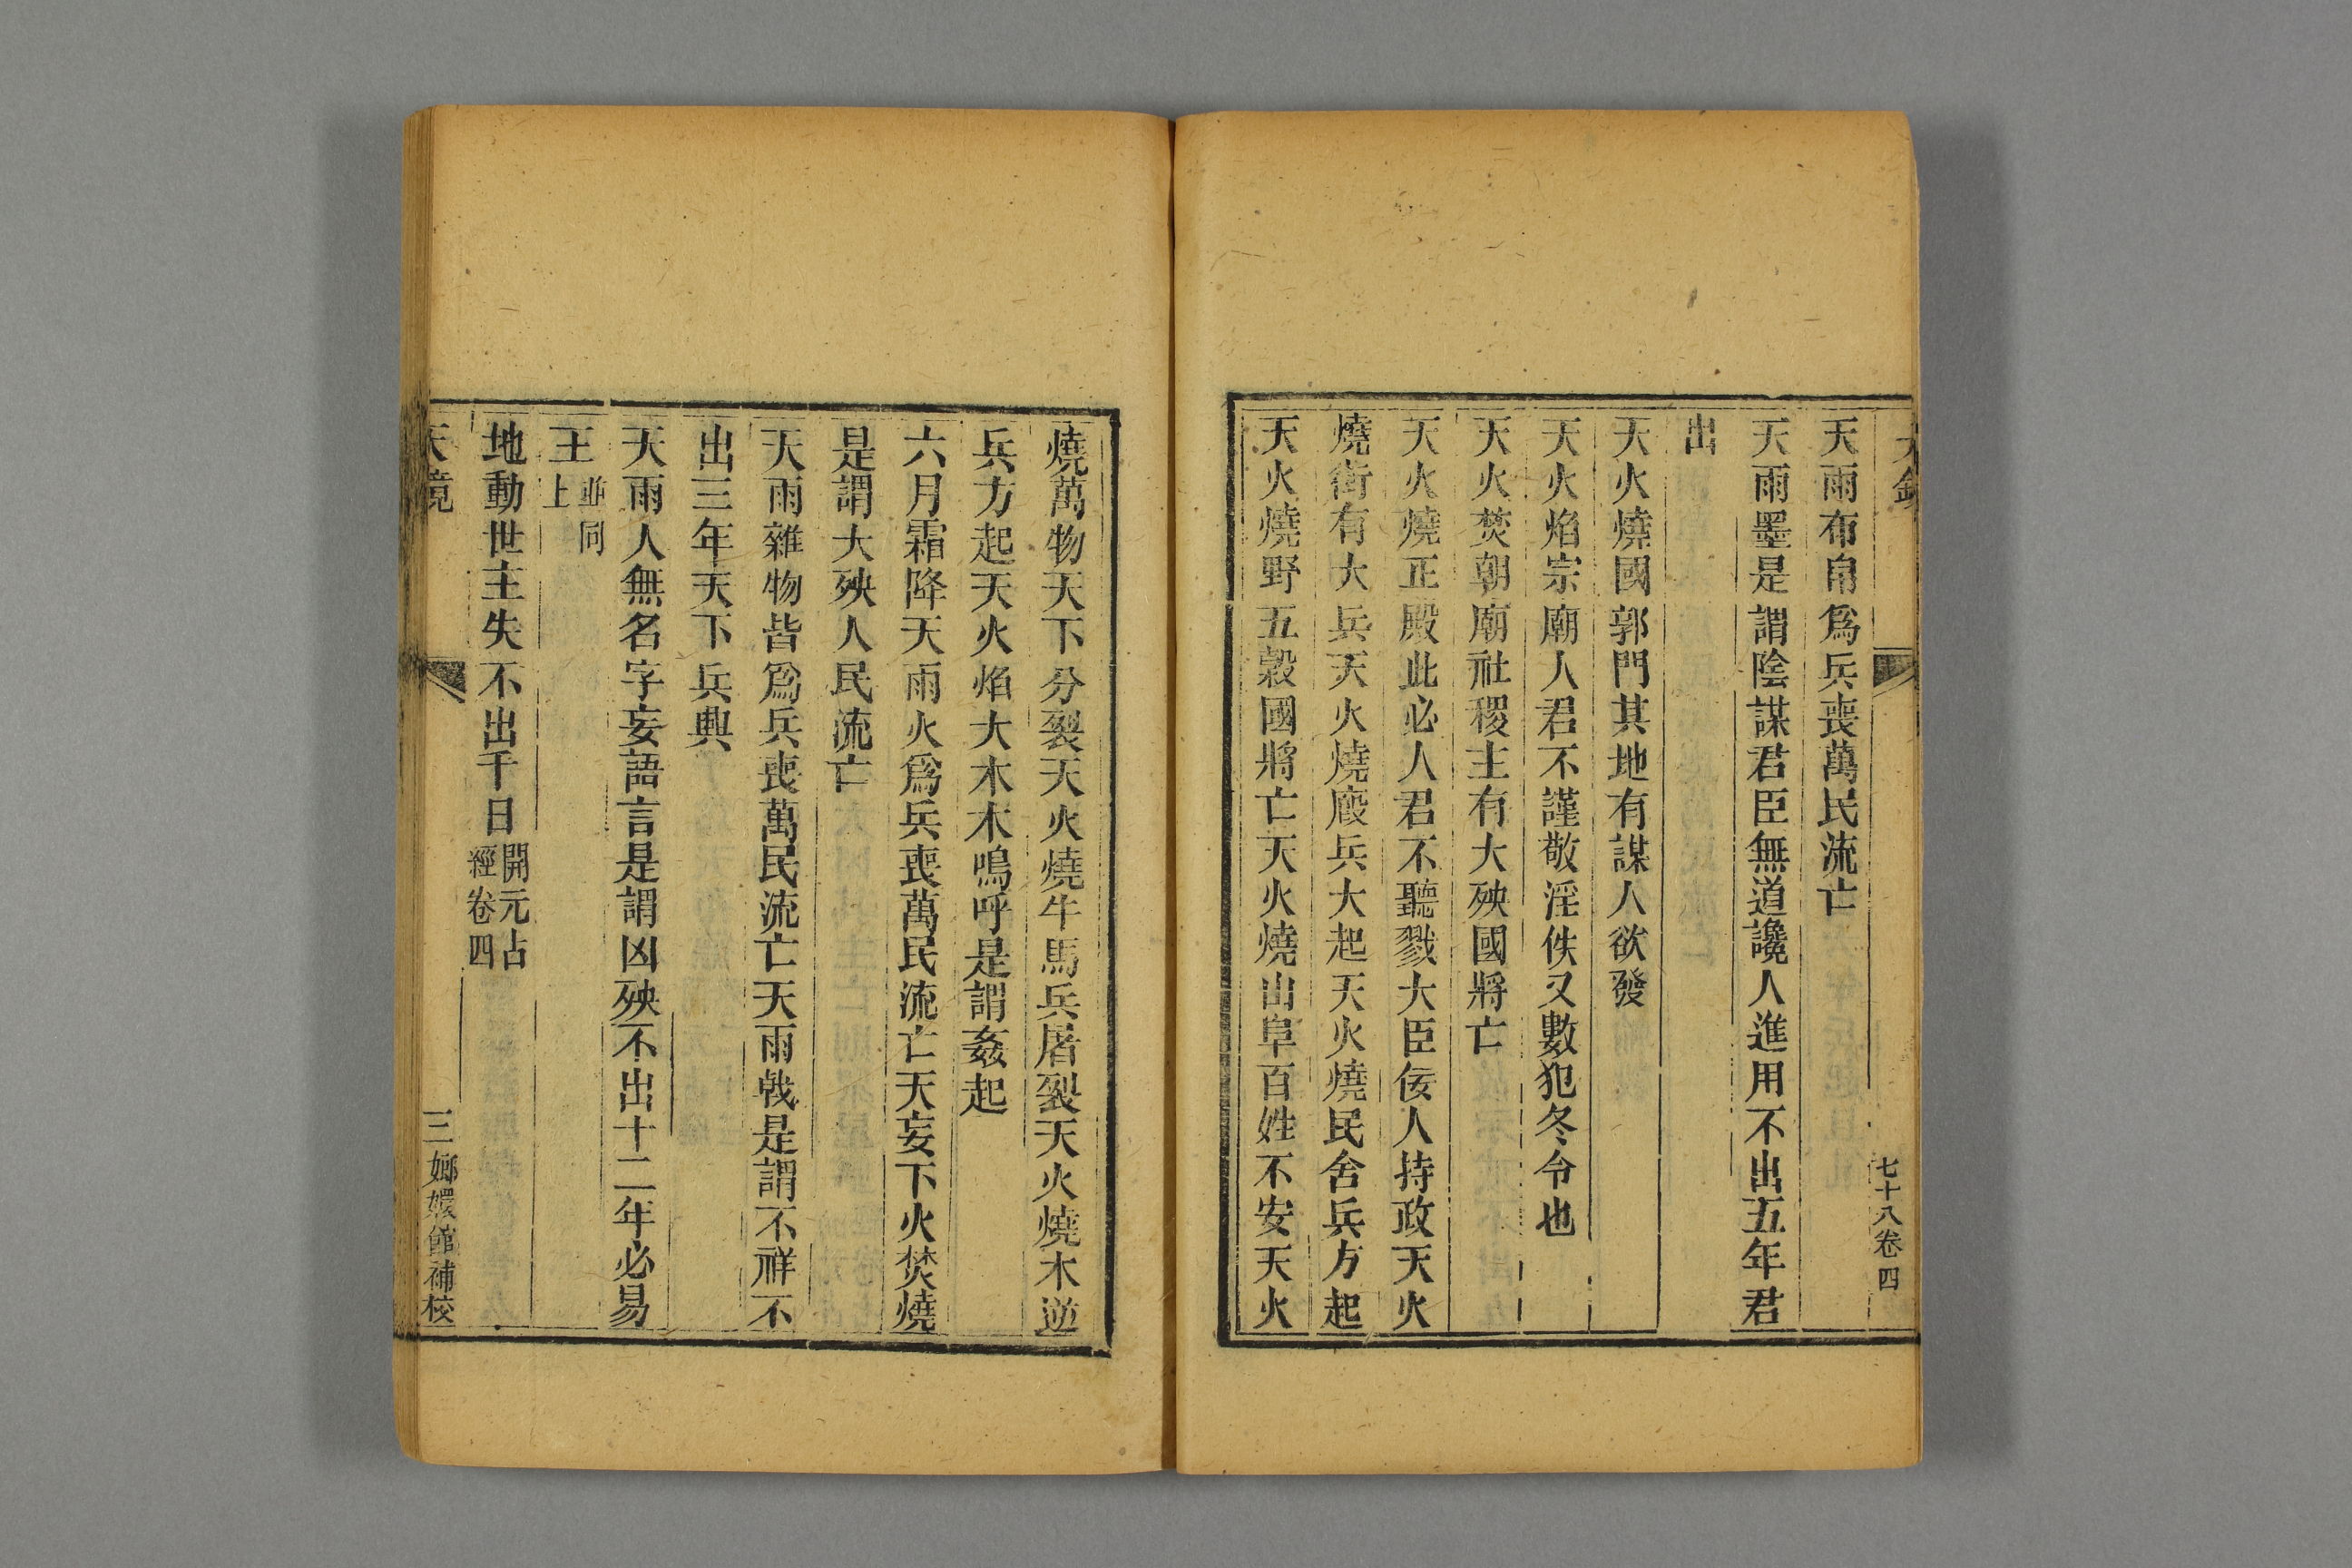 七十八卷四
天雨布帛爲兵喪萬民流亡
天雨墨是謂陰謀君臣無道讒人進用不出五年君
出
天火燒國郭門其地有謀人欲發
天火焰宗廟人君不謹敬淫佚又數犯冬令也
天火焚朝廟社稷主有大殃國將亡
天火燒正殿此必人君不聽戮大臣佞人持政天火
燒街有大兵天火燒廄兵大起天火燒民舍兵方起
天火燒野五穀國將亡天火燒山阜百姓不安天火
燒萬物天下分裂天火燒牛馬兵屠裂天火燒木逆
兵方起天火焰大木木鳴呼是謂姦起
六月霜降天雨火爲兵喪萬民流亡天妄下火焚燒
是謂大殃人民流亡
天雨雜物皆爲兵喪萬民流亡天雨戟是謂不祥不
出三年天下兵興
天雨人無名字妄語言是謂凶殃不出十二年必易
王並同上
地動世主失不出千日開元占經卷四
天鏡
三嫏嬛館補校